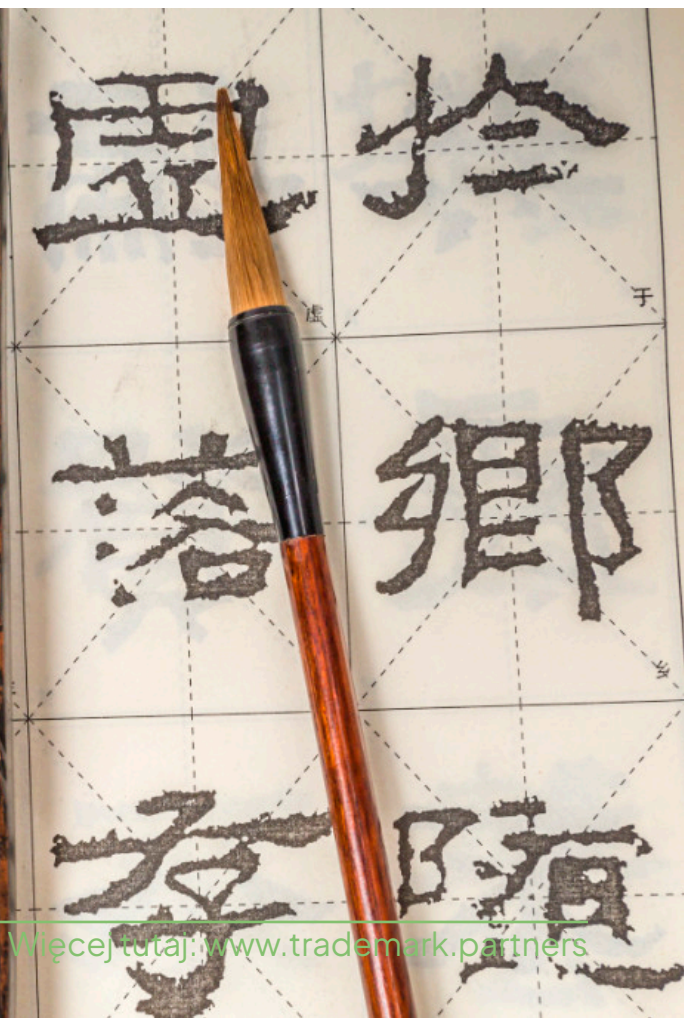 扵
于
鄉
乡
虛
虚
落
存
Więcej tutaj: www.trademark.partners